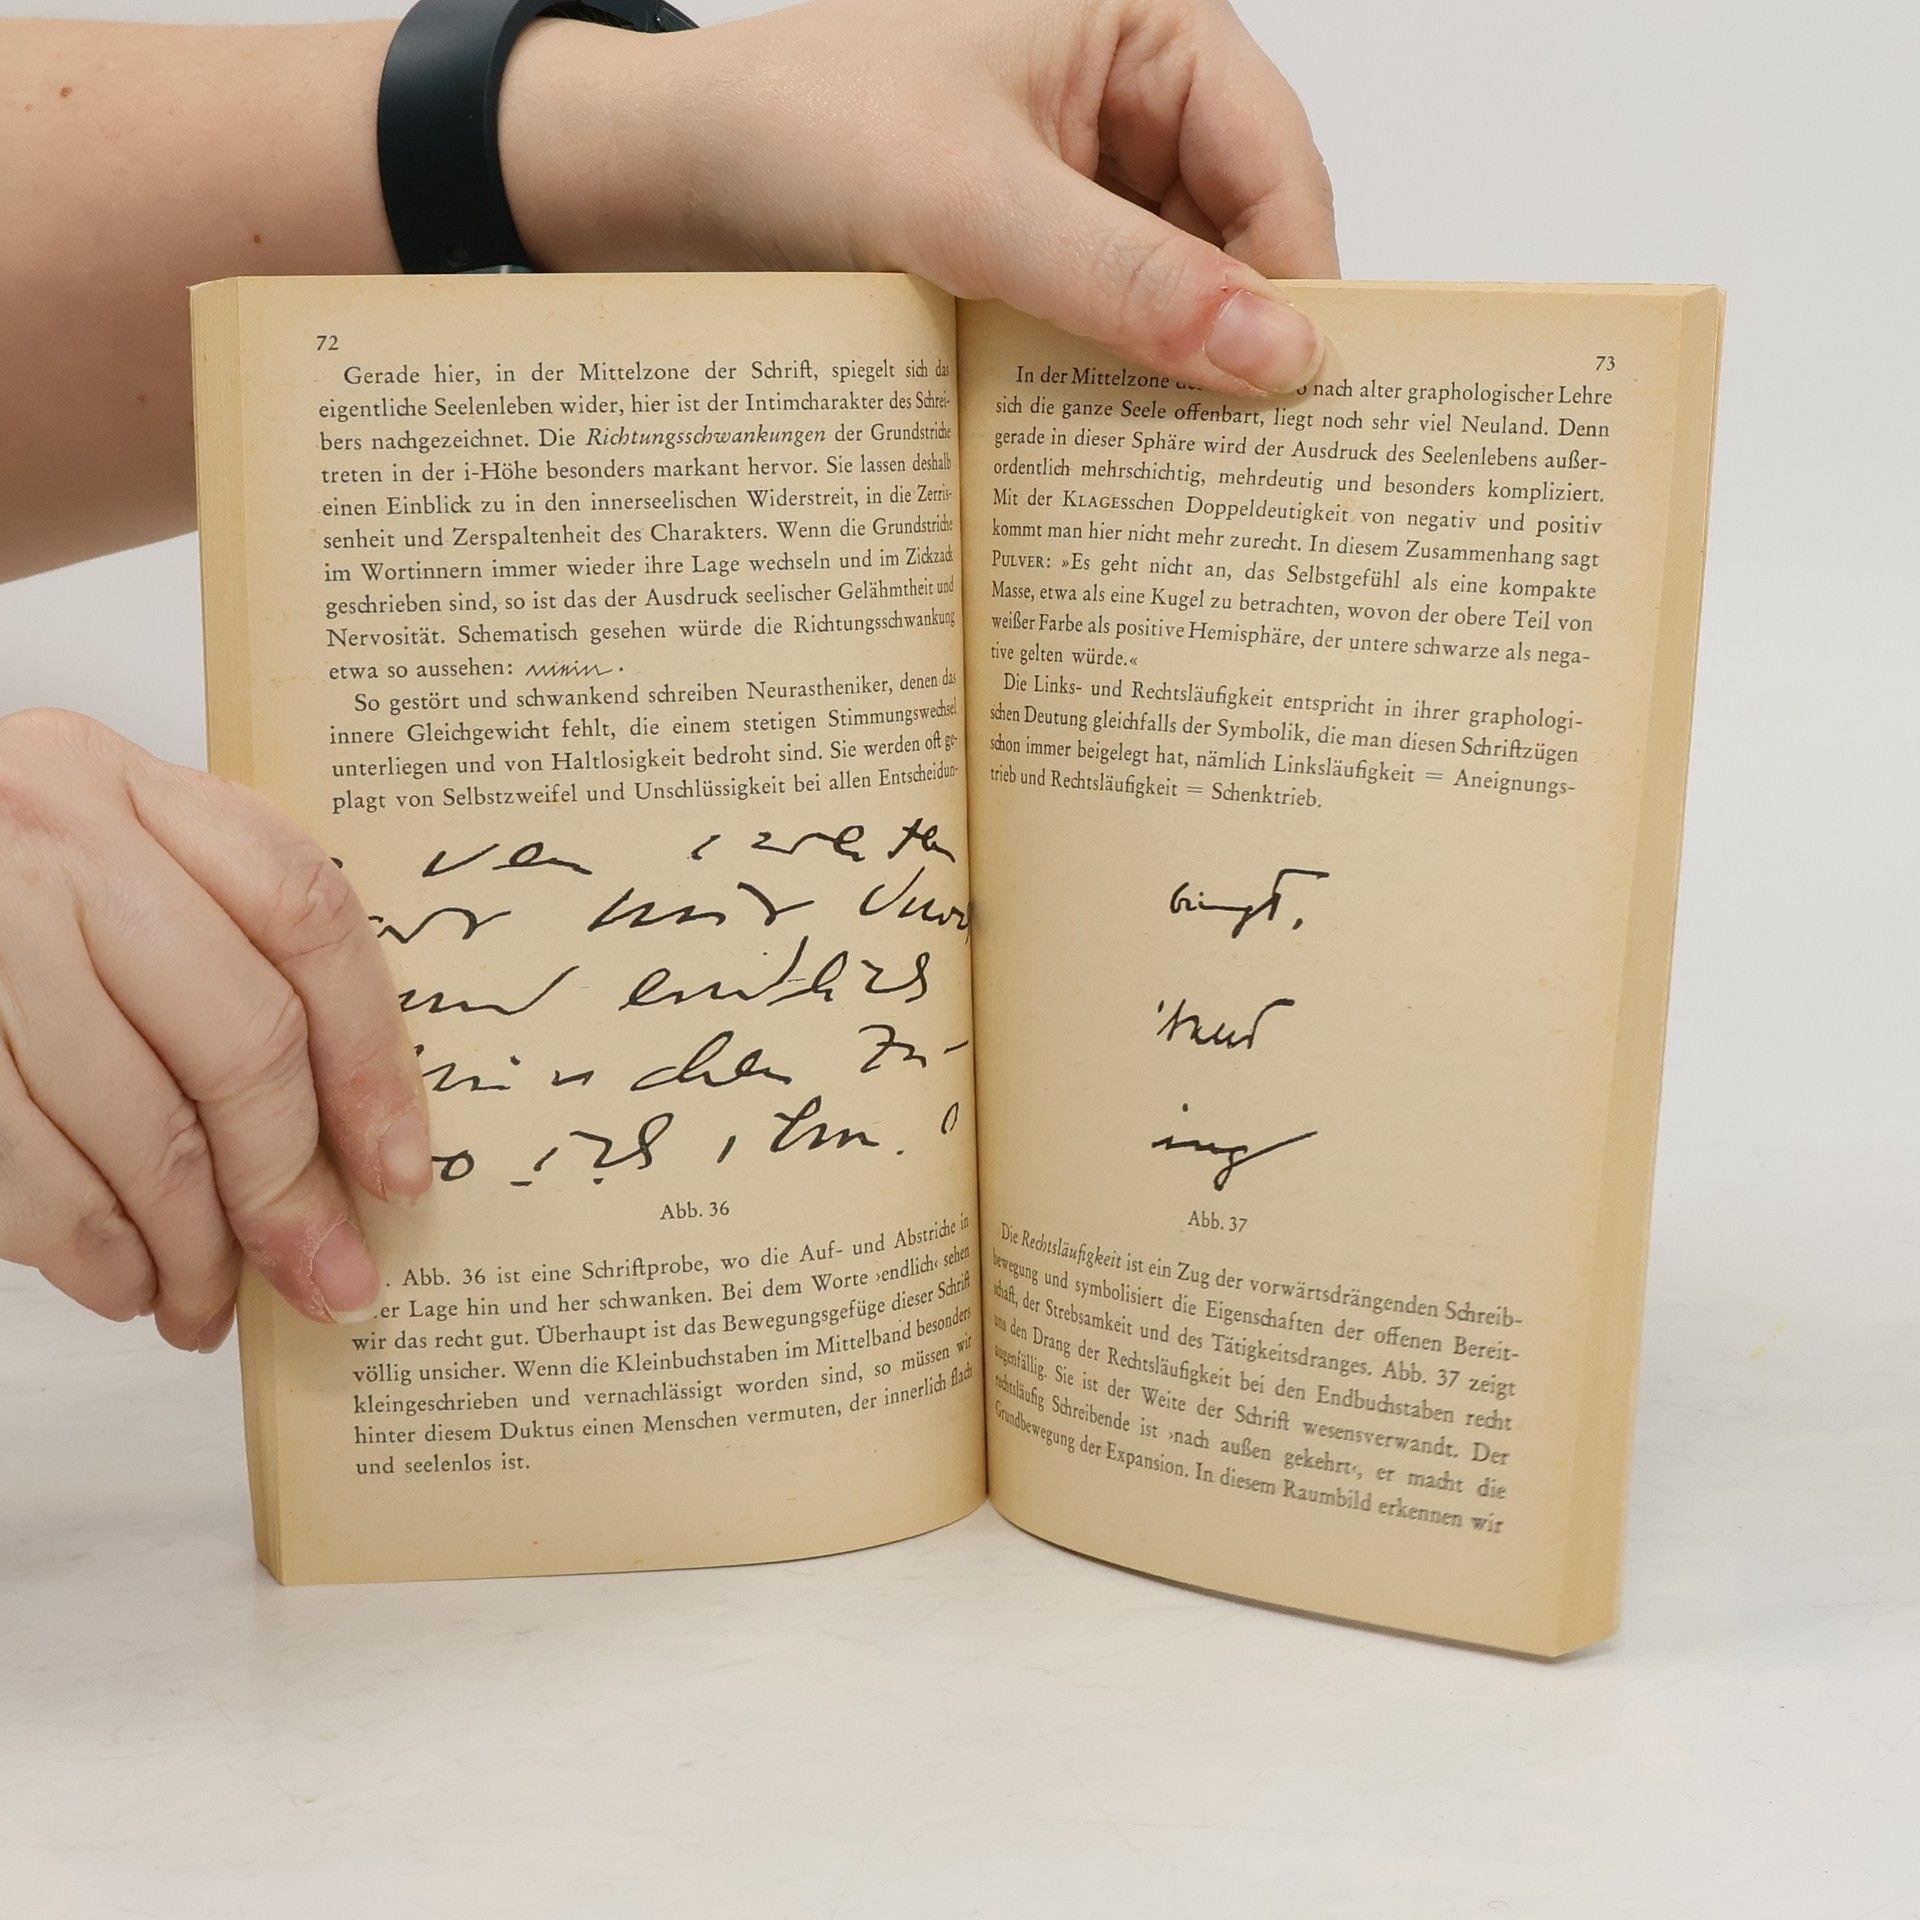 72
Gerade hier, in der Mittelzone der Schrift, spiegelt sich das
eigentliche Seelenleben wider, hier ist der Intimcharakter des Schrei-
bers nachgezeichnet. Die Richtungsschwankungen der Grundstriche
treten in der i-Höhe besonders markant hervor. Sie lassen deshalb
einen Einblick zu in den innerseelischen Widerstreit, in die Zerris-
senheit und Zerspaltenheit des Charakters. Wenn die Grundstriche
im Wortinnern immer wieder ihre Lage wechseln und im Zickzack
geschrieben sind, so ist das der Ausdruck seelischer Gelähmtheit und
Nervosität. Schematisch gesehen würde die Richtungsschwankung
etwa so aussehen:
So gestört und schwankend schreiben Neurastheniker, denen das
innere Gleichgewicht fehlt, die einem stetigen Stimmungswechsel
unterliegen und von Haltlosigkeit bedroht sind. Sie werden oft ge-
plagt von Selbstzweifel und Unschlüssigkeit bei allen Entscheidun-
Abb. 36
. Abb. 36 ist eine Schriftprobe, wo die Auf- und Abstriche in
Lage hin und her schwanken. Bei dem Worte ›endlich‹ sehen
wir das recht gut. Überhaupt ist das Bewegungsgefüge dieser Schrift
völlig unsicher. Wenn die Kleinbuchstaben im Mittelband besonders
kleingeschrieben und vernachlässigt worden sind, so müssen wir
hinter diesem Duktus einen Menschen vermuten, der innerlich flach
und seelenlos ist.
73
In der Mittelzone nach alter graphologischer Lehre
sich die ganze Seele offenbart, liegt noch sehr viel Neuland. Denn
gerade in dieser Sphäre wird der Ausdruck des Seelenlebens außer-
ordentlich mehrschichtig, mehrdeutig und besonders kompliziert.
Mit der KLAGESschen Doppeldeutigkeit von negativ und positiv
kommt man hier nicht mehr zurecht. In diesem Zusammenhang sagt
PULVER: »Es geht nicht an, das Selbstgefühl als eine kompakte
Masse, etwa als eine Kugel zu betrachten, wovon der obere Teil von
weißer Farbe als positive Hemisphäre, der untere schwarze als nega-
tive gelten würde.«
Die Links- und Rechtsläufigkeit entspricht in ihrer graphologi-
schen Deutung gleichfalls der Symbolik, die man diesen Schriftzügen
schon immer beigelegt hat, nämlich Linksläufigkeit = Aneignungs-
trieb und Rechtsläufigkeit = Schenktrieb.
ing
Abb. 37
Die Rechtsläufigkeit ist ein Zug der vorwärtsdrängenden Schreib-
bewegung und symbolisiert die Eigenschaften der offenen Bereit-
schaft, der Strebsamkeit und des Tätigkeitsdranges. Abb. 37 zeigt
uns den Drang der Rechtsläufigkeit bei den Endbuchstaben recht
augenfällig. Sie ist der Weite der Schrift wesensverwandt. Der
rechtsläufig Schreibende ist ›nach außen gekehrt‹, er macht die
Grundbewegung der Expansion. In diesem Raumbild erkennen wir